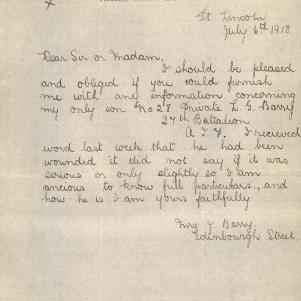 Pt Lincoln
July 6th 1918
Dear Sir or Madam,
I should be pleased
and obliged if you could furnish
me with any information concerning
my only son No 28 Private L. G. Barry
27th Battalion
A I F. I recieved
word last week that he had been
wounded it did not say if it was
serious or only slightly so I am
ancious to know full particulars, and
how he is I am yours faithfully
Mrs J Barry
Edinbourgh Street